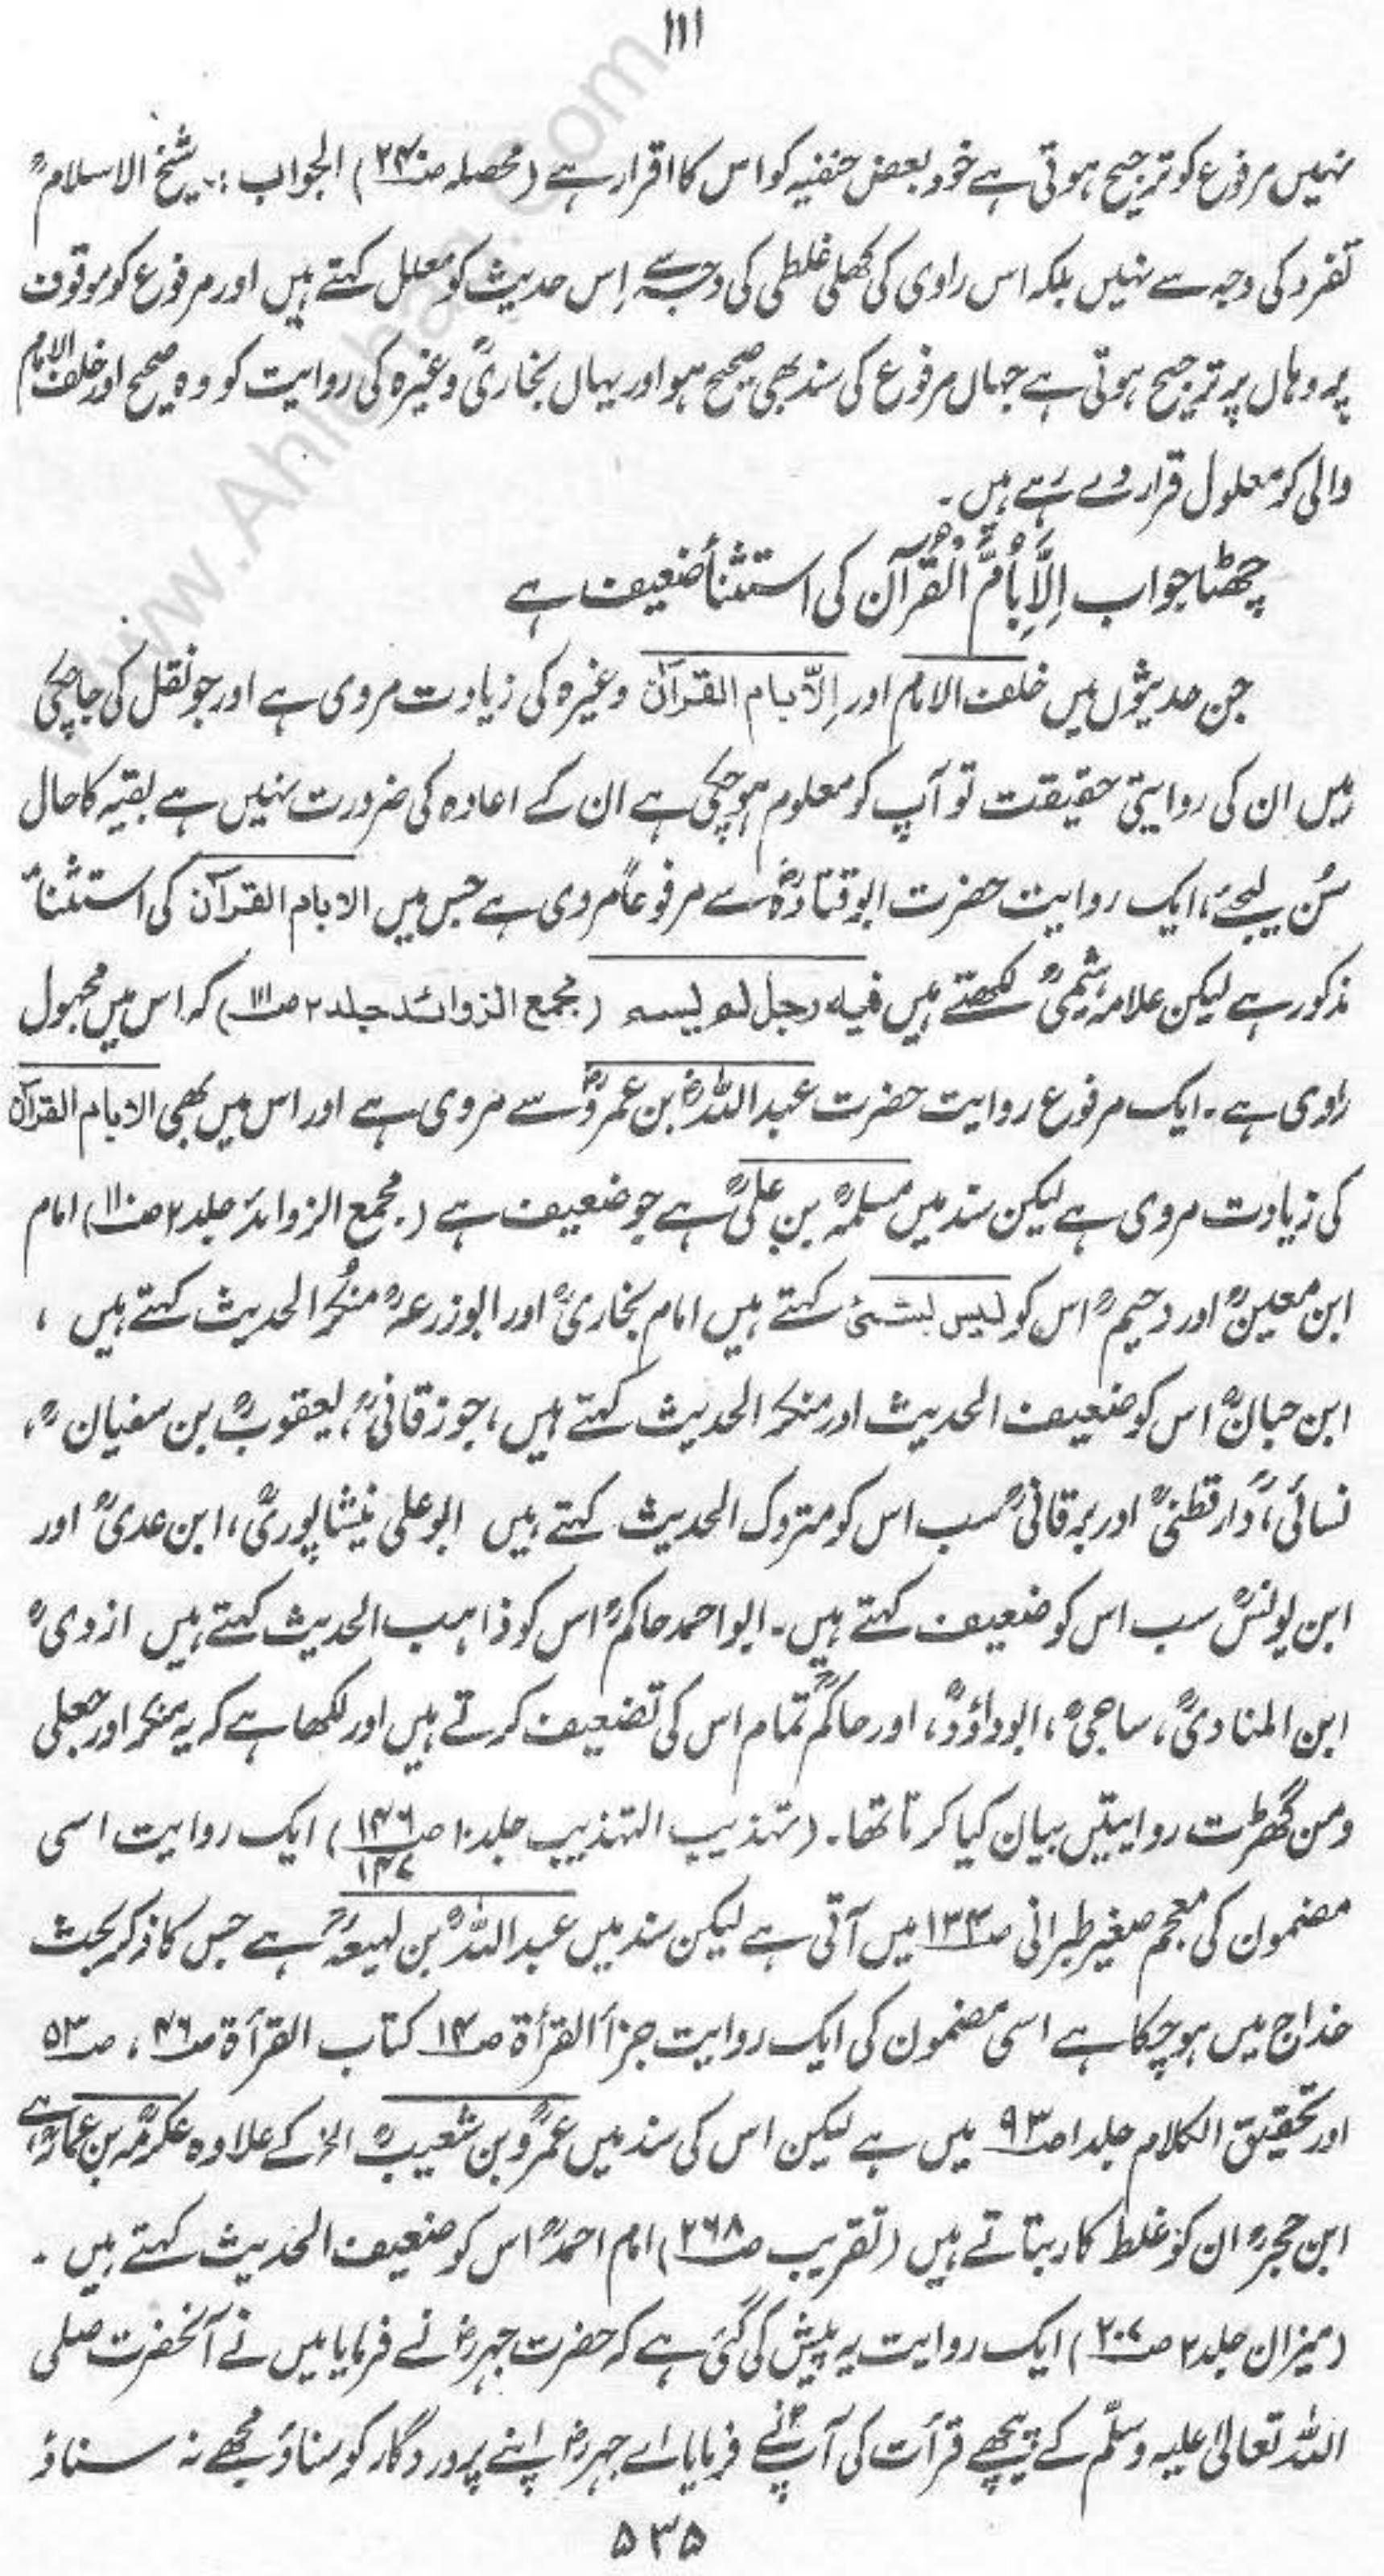 ١١١
نہیں مرفوع کو ترجیح ہوتی ہے خود بعض حنفیہ کو اس کا اقرار ہے (محصلہ صـ۲۴) الجواب :۔ شیخ الاسلامؒ
تفرد کی وجہ سے نہیں بلکہ اس راوی کی کھلی غلطی کی وجہ سے اِس حدیث کو معلل کہتے ہیں اور مرفوع کو موقوف
پر وہاں پر ترجیح ہوتی ہے جہاں مرفوع کی سند بھی صحیح ہو اور یہاں بخاریؒ وغیرہ کی روایت کو وہ صحیح اور خلف الامام
والی کو معلول قرار دے رہے ہیں۔
چھٹا جواب اِلَّا بِاُمِّ الْقُرْآن کی استثناء ضعیف ہے
جن حدیثوں میں خلف الامام اور اِلّا بام القرآن وغیرہ کی زیادت مروی ہے اور جو نقل کی جا چکی
ہیں ان کی روایتی حقیقت تو آپ کو معلوم ہو چکی ہے ان کے اعادہ کی ضرورت نہیں ہے بقیہ کا حال
سُن لیجئے، ایک روایت حضرت ابو قتادہؓ سے مرفوعاً مروی ہے جس میں الا بام القرآن کی استثناء
مذکور ہے لیکن علامہ ہیثمیؒ لکھتے ہیں فیہ رجل لم یسم (مجمع الزوائد جلد ۲ صـ۱۱۱) کہ اس میں مجہول
راوی ہے۔ ایک مرفوع روایت حضرت عبد اللہؓ بن عمروؓ سے مروی ہے اور اس میں بھی الا بام القرآن
کی زیادت مروی ہے لیکن سند میں مسلمہؒ بن علیؒ ہے جو ضعیف ہے (مجمع الزوائد جلد ۲ صـ۱۱۰) امام
ابن معینؒ اور دحیمؒ اس کو لیس بشئ کہتے ہیں امام بخاریؒ اور ابوزرعہؒ منکرُ الحدیث کہتے ہیں ،
ابن حبانؒ اس کو ضعیف الحدیث اور منکر الحدیث کہتے ہیں، جوزقانیؒ، یعقوبؒ بن سفیانؒ،
نسائیؒ، دارقطنیؒ اور برقانیؒ سب اس کو متروک الحدیث کہتے ہیں ابو علی نیشاپوریؒ، ابن عدیؒ اور
ابن یونسؒ سب اس کو ضعیف کہتے ہیں۔ ابو احمد حاکمؒ اس کو ذاہب الحدیث کہتے ہیں ازدیؒ
ابن المنادیؒ، ساجیؒ، ابوداؤدؒ، اور حاکمؒ تمام اس کی تضعیف کرتے ہیں اور لکھا ہے کہ یہ منکر اور جعلی
ومن گھڑت روایتیں بیان کیا کرتا تھا۔ (تہذیب التہذیب جلد ۱۰ صـ۱۴۶ ۱۴۷) ایک روایت اسی
مضمون کی معجم صغیر طبرانی صـ۱۳۴ میں آتی ہے لیکن سند میں عبد اللہؒ بن لہیعہؒ ہے جس کا ذکر بحث
خداج میں ہو چکا ہے اسی مضمون کی ایک روایت جزأ القرأۃ صـ۱۴ کتاب القرأۃ صـ۴۶، صـ۵۳
اور تحقیق الکلام جلد ۱ صـ۹۳ میں ہے لیکن اس کی سند میں عمروؒ بن شعیبؒ الخ کے علاوہ عکرمہؒ بن عمارؒ ہے
ابن حجرؒ ان کو غلط کار بتاتے ہیں (تقریب صـ۲۶۸) امام احمدؒ اس کو ضعیف الحدیث کہتے ہیں۔
(میزان جلد ۲ صـ۲۰۷) ایک روایت یہ پیش کی گئی ہے کہ حضرت جہرؓ نے فرمایا میں نے آنحضرت صلی
اللہ تعالیٰ علیہ وسلّم کے پیچھے قرأت کی آپؐ نے فرمایا اے جہرؓ اپنے پروردگار کو سناؤ مجھے نہ سناؤ
۵۳۵